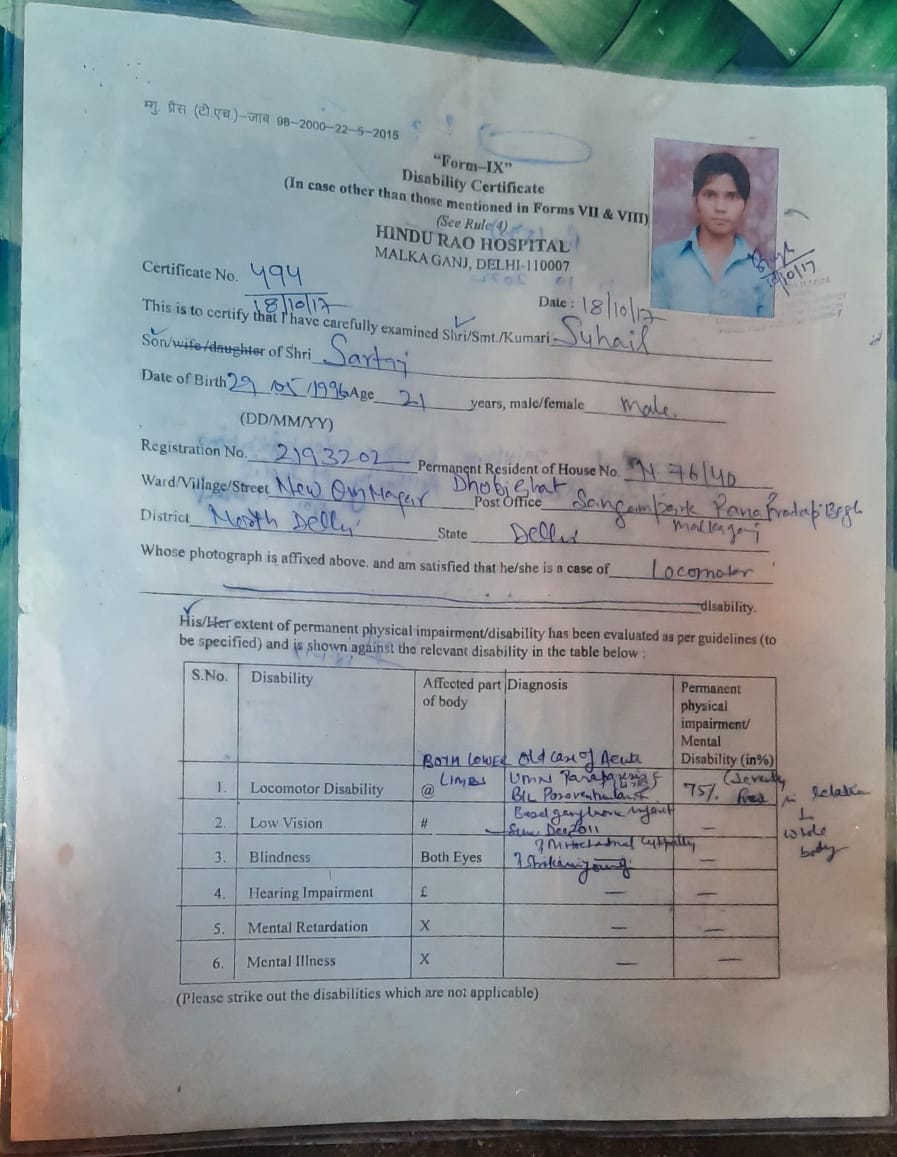 म्यु. प्रैस (टी.एच.)–जाब 98–2000–22–5–2015
"Form–IX"
Disability Certificate
(In case other than those mentioned in Forms VII & VIII)
(See Rule 4)
HINDU RAO HOSPITAL
MALKA GANJ, DELHI-110007
Certificate No. 494
18/10/17
Date : 18/10/17
18/10/17
This is to certify that I have carefully examined Shri/Smt./Kumari Suhail
Son/wife/daughter of Shri Sartaj
Date of Birth 29/05/1996 Age 21 years, male/female male
(DD/MM/YY)
Registration No. 2193202 Permanent Resident of House No. N-76/40
Ward/Village/Street New Om Nagar Dhobighat Post Office Sangam park Rana Pratap Bagh
District North Delhi State Delhi Malkaganj
Whose photograph is affixed above. and am satisfied that he/she is a case of Locomotor
disability.
His/Her extent of permanent physical impairment/disability has been evaluated as per guidelines (to
be specified) and is shown against the relevant disability in the table below :
S.No. Disability Affected part of body Diagnosis Permanent physical impairment/ Mental Disability (in%)
1. Locomotor Disability @ BOTH LOWER LIMBS Old case of Acute UMN 75% in relation to whole body
2. Low Vision # Since Dec 2011 —
3. Blindness Both Eyes —
4. Hearing Impairment £ — —
5. Mental Retardation X — —
6. Mental Illness X — —
(Please strike out the disabilities which are not applicable)